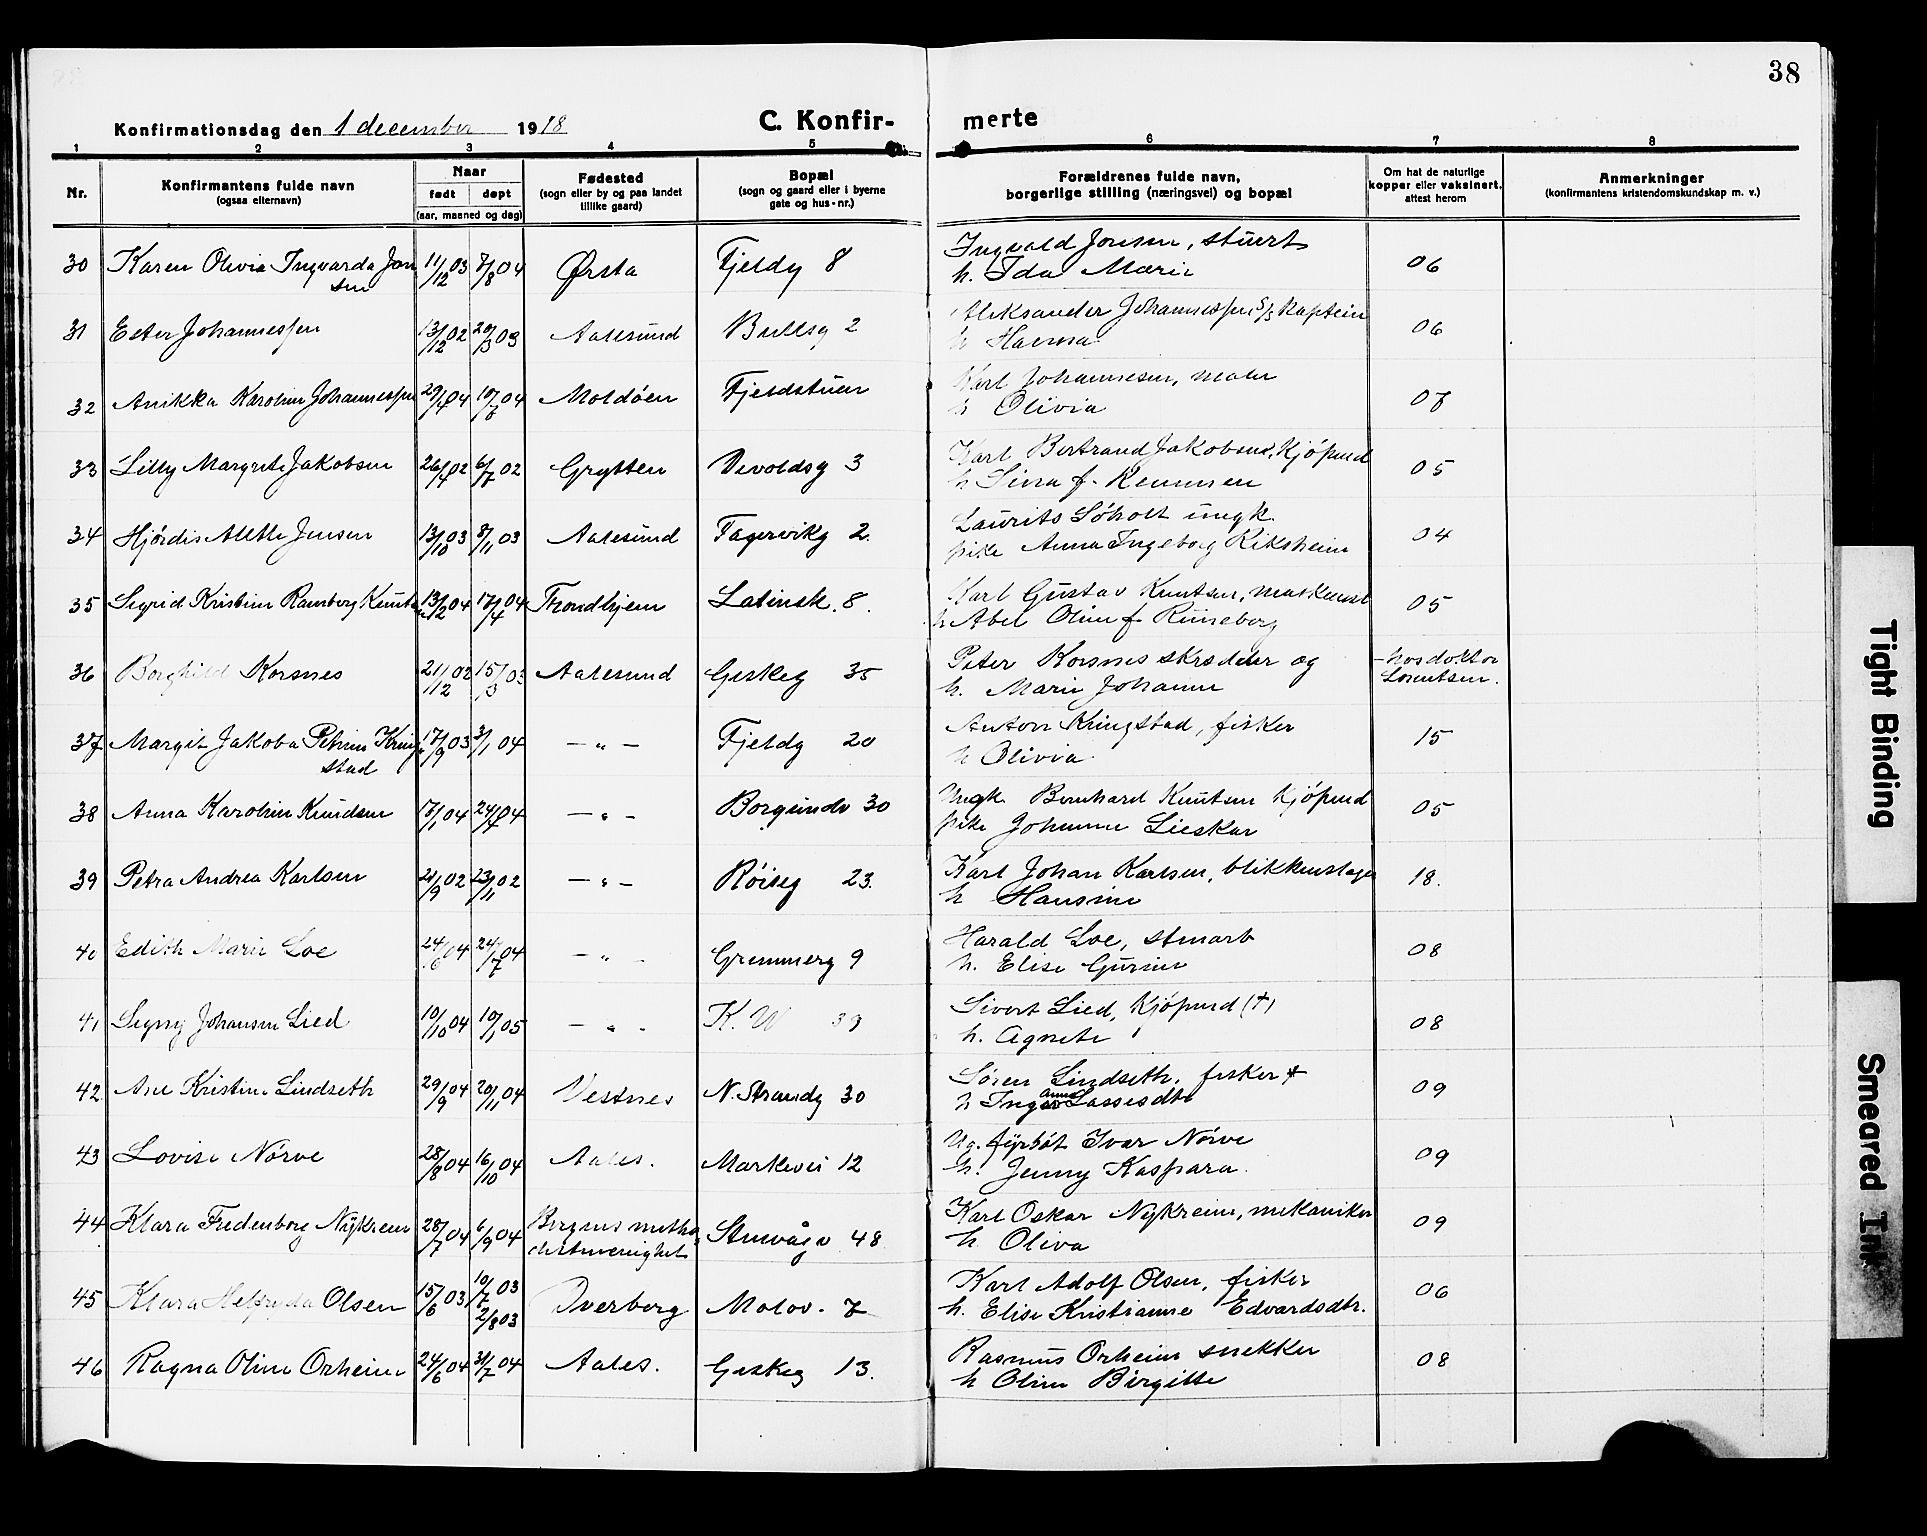 38
Konfirmationsdag den 1 december 1918
C. Konfirmerte
1 2 3 4 5 6 7 8
Nr.
Konfirmantens fulde navn
(ogsaa efternavn)
Naar
født døpt
(aar, maaned og dag)
Fødested
(sogn eller by og paa landet
tillike gaard)
Bopæl
(sogn og gaard eller i byerne
gate og hus-nr.)
Forældrenes fulde navn,
borgerlige stilling (næringsvei) og bopæl
Om hat de naturlige
kopper eller vaksinert,
attest herom
Anmerkninger
(konfirmantens kristendomskundskap m. v.)
30 Karen Olivia Ingvarda Jonsen 11/12 03 7/8 04 Ørsta Fjeldg 8 Ingvald Jonsen, stuert
h. Ida Marie 06
31 Ester Johannessen 13/12 02 29/3 03 Aalesund Bullsg 2 Aleksander Johannessen S/S Kaptein
h Hanna 06
32 Anikka Karolin Johannessen 29/4 04 10/7 04 Moldöen Fjeldstuen Karl Johannesen, maler
h Olivia 07
33 Lilly Margrete Jakobsen 26/4 02 6/7 02 Grytten Devoldsg 3 Karl Bertrand Jakobsen, Kjöpmd
h Sina f. Remmen 05
34 Hjördis Alette Jensen 13/10 03 8/11 03 Aalesund Fagervikg 2. Laurits Söholt ungk.
pike Anna Ingeborg Riksheim 04
35 Sigrid Kristine Ramborg Knutsen 13/2 04 17/4 04 Trondhjem Latinsk. 8. Karl Gustav Knutsen, maskinist
h Abel Oline f Runeborg 05
36 Borghild Korsnes 21/12 02 15/3 03 Aalesund Geskeg 35 Peter Korsnes skrædder og
h. Marie Johanne hos doktor
Lorentsen.
37 Margit Jakoba Petrine Kringstad 17/9 03 3/1 04 — " — Fjeldg 20 Anton Kringstad, fisker
h Olivia 15
38 Anna Karoline Knudsen 17/1 04 24/4 04 — " — Borgundv 30 Ungk. Bernhard Knutsen Kjöpmd
pike Johanne Lieskar 05
39 Petra Andrea Karlsen 21/9 02 23/11 02 — " — Röiseg 23. Karl Johan Karlsen, blikkenslager
h Hansine 18.
40 Edith Marie Loe 24/6 04 24/7 04 — " — Gremmerg 9 Harald Loe, stuart
h. Elise Gurine 08
41 Signy Johansen Lied 10/10 04 10/1 05 — " — K. W 39 Sivert Lied, Kjöpmd (†)
h. Agnete 08
42 Ane Kristine Lindseth 29/9 04 20/11 04 Vestnes N. Strandg 30 Sören Lindseth, fisker †
h Inger Anna Lassesdtr 09
43 Lovise Nörve 28/8 04 16/10 04 Aales. Markevei 12 Ug. fyrböt Ivar Nörve
h. Jenny Kaspara. 09
44 Klara Fredenborg Nykreim 28/7 04 6/9 04 Bergens methodistmenighet Stenvågv 48 Karl Oskar Nykreim, mekaniker
h. Oliva 09
45 Klara Helfryda Olsen 15/6 03 10/7 03 2/8 03 Dverberg Molov. 7 Karl Adolf Olsen, fisker
h. Elise Kristianne Edvardsdtr. 06
46 Ragna Oline Orheim 24/6 04 31/7 04 Aales. Geskeg 13. Rasmus Orheim snekker
h Oline Birgitte 08
Tight Binding
Smeared Ink